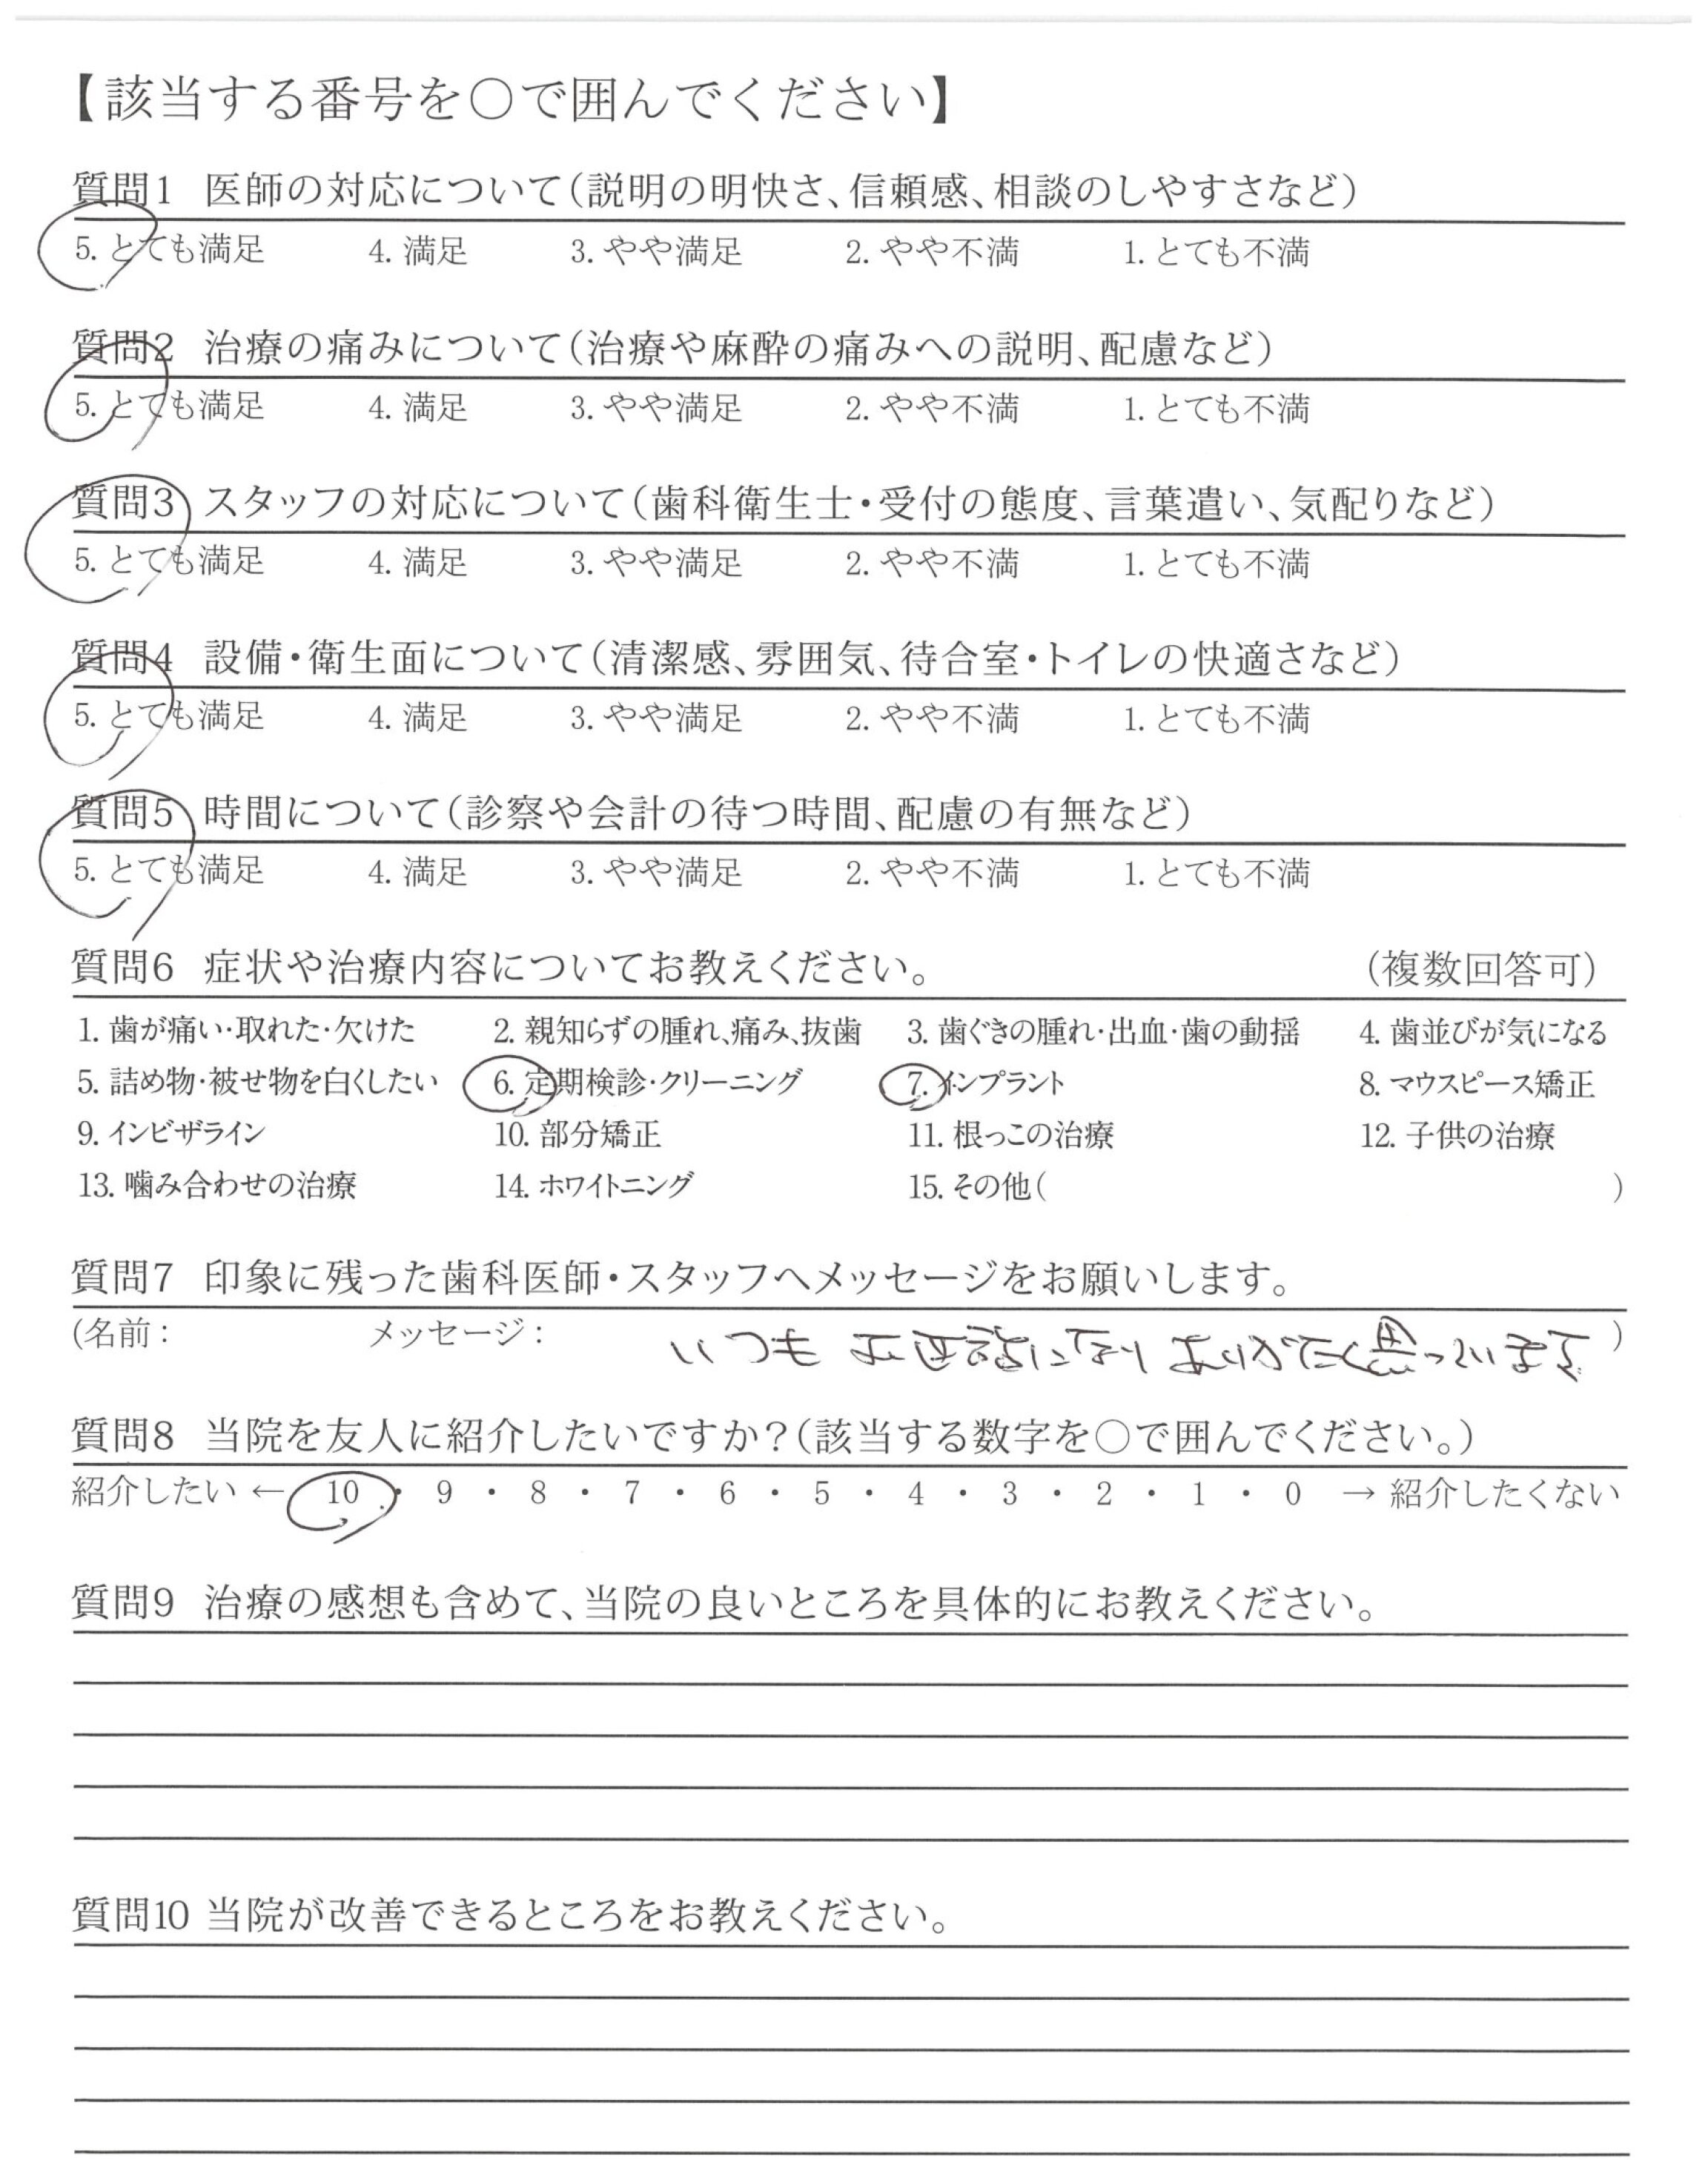 【該当する番号を○で囲んでください】
質問1 医師の対応について(説明の明快さ、信頼感、相談のしやすさなど)
5. とても満足 4. 満足 3. やや満足 2. やや不満 1. とても不満
質問2 治療の痛みについて(治療や麻酔の痛みへの説明、配慮など)
5. とても満足 4. 満足 3. やや満足 2. やや不満 1. とても不満
質問3 スタッフの対応について(歯科衛生士・受付の態度、言葉遣い、気配りなど)
5. とても満足 4. 満足 3. やや満足 2. やや不満 1. とても不満
質問4 設備・衛生面について(清潔感、雰囲気、待合室・トイレの快適さなど)
5. とても満足 4. 満足 3. やや満足 2. やや不満 1. とても不満
質問5 時間について(診察や会計の待つ時間、配慮の有無など)
5. とても満足 4. 満足 3. やや満足 2. やや不満 1. とても不満
質問6 症状や治療内容についてお教えください。 (複数回答可)
1. 歯が痛い・取れた・欠けた 2. 親知らずの腫れ、痛み、抜歯 3. 歯ぐきの腫れ・出血・歯の動揺 4. 歯並びが気になる
5. 詰め物・被せ物を白くしたい 6. 定期検診・クリーニング 7. インプラント 8. マウスピース矯正
9. インビザライン 10. 部分矯正 11. 根っこの治療 12. 子供の治療
13. 噛み合わせの治療 14. ホワイトニング 15. その他( )
質問7 印象に残った歯科医師・スタッフへメッセージをお願いします。
(名前: メッセージ: いつも お世話になり ありがたく思っています )
質問8 当院を友人に紹介したいですか?(該当する数字を○で囲んでください。)
紹介したい ← 10 ・ 9 ・ 8 ・ 7 ・ 6 ・ 5 ・ 4 ・ 3 ・ 2 ・ 1 ・ 0 → 紹介したくない
質問9 治療の感想も含めて、当院の良いところを具体的にお教えください。
質問10 当院が改善できるところをお教えください。